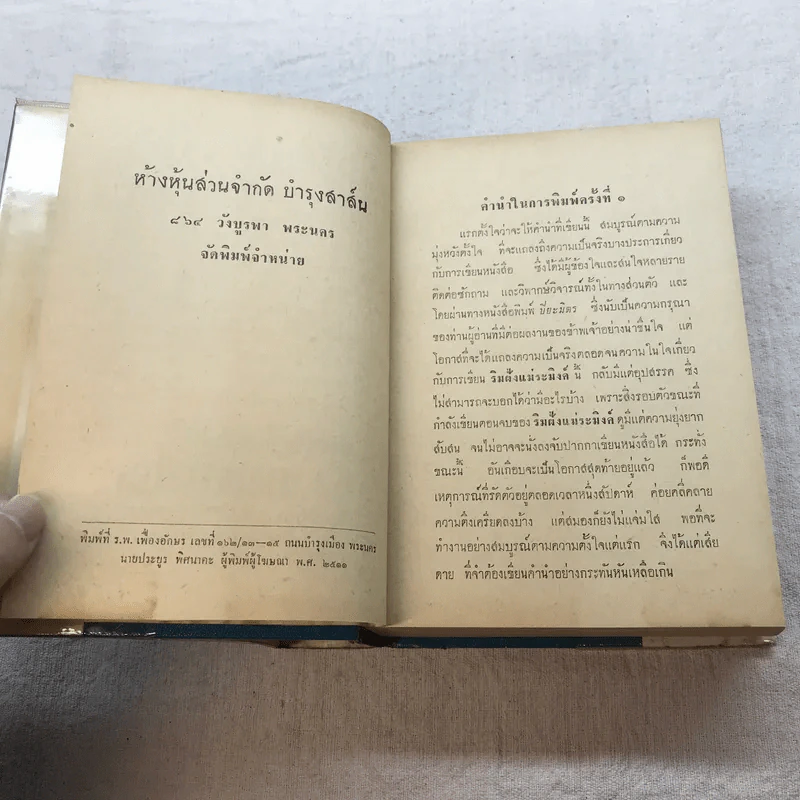 ห้างหุ้นส่วนจำกัด บำรุงสาส์น
๘๖๔ วังบูรพา พระนคร
จัดพิมพ์จำหน่าย
พิมพ์ที่ ร.พ. เฟื่องอักษร เลขที่ ๑๖๒/๑๓—๑๕ ถนนบำรุงเมือง พระนคร
นายประยูร พิศนาคะ ผู้พิมพ์ผู้โฆษณา พ.ศ. ๒๕๑๑
คำนำในการพิมพ์ครั้งที่ ๑
แรกตั้งใจว่าจะให้คำนำที่เขียนนี้ สมบูรณ์ตามความ
มุ่งหวังตั้งใจ ที่จะแถลงถึงความเป็นจริงบางประการเกี่ยว
กับการเขียนหนังสือ ซึ่งได้มีผู้ข้องใจและสนใจหลายราย
ติดต่อซักถาม และวิพากษ์วิจารณ์ทั้งในทางส่วนตัว และ
โดยผ่านทางหนังสือพิมพ์ ปิยะมิตร ซึ่งนับเป็นความกรุณา
ของท่านผู้อ่านที่มีต่อผลงานของข้าพเจ้าอย่างน่าชื่นใจ แต่
โอกาสที่จะได้แถลงความเป็นจริงตลอดจนความในใจเกี่ยว
กับการเขียน ริมฝั่งแม่ระมิงค์ นี้ กลับมีแต่อุปสรรค ซึ่ง
ไม่สามารถจะบอกได้ว่ามีอะไรบ้าง เพราะสิ่งรอบตัวขณะที่
กำลังเขียนตอนจบของ ริมฝั่งแม่ระมิงค์ ดูมีแต่ความยุ่งยาก
สับสน จนไม่อาจจะนั่งลงจับปากกาเขียนหนังสือได้ กระทั่ง
ขณะนี้ อันเกือบจะเป็นโอกาสสุดท้ายอยู่แล้ว ก็พอดี
เหตุการณ์ที่รัดตัวอยู่ตลอดเวลาหนึ่งสัปดาห์ ค่อยคลี่คลาย
ความตึงเครียดลงบ้าง แต่สมองก็ยังไม่แจ่มใส พอที่จะ
ทำงานอย่างสมบูรณ์ตามความตั้งใจแต่แรก จึงได้แต่เสีย
ดาย ที่จำต้องเขียนคำนำอย่างกระทันหันเหลือเกิน